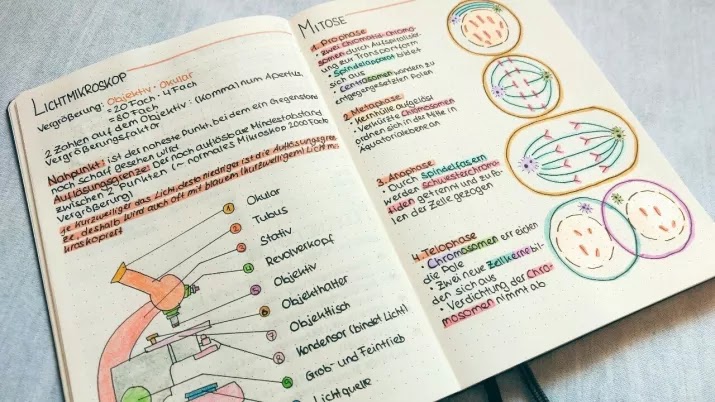 LICHTMIKROSKOP
Vergrößerung: Objektiv · Okular
= 20 Fach · 4 Fach
= 80 Fach
2 Zahlen auf dem Objektiv: (Komma) num Apertus,
Vergrößerungsfaktor
Nahpunkt: ist der naheste Punkt, bei dem ein Gegenstand
noch scharf gesehen wird
Auflösungsgrenze: Der noch auflösbare Mindestabstand
zwischen 2 Punkten (~ normales Mikroskop 2000 Fache
Vergrößerung)
je kurzwelliger das Licht, desto niedriger ist die Auflösungsgren
ze, deshalb wird auch oft mit blauem (kurzwelligem) Licht mi
kroskopiert
1 Okular
2 Tubus
3 Stativ
4 Revolverkopf
5 Objektiv
6 Objekthalter
7 Objekttisch
8 Kondensor (bindet Licht)
9 Grob- und Feintrieb
Lichtquelle
MITOSE
1. Prophase
• zwei Chromatid-Chromo-
somen durch Aufspiralisier-
ung zur Transportform
• Spindelapparat bildet
sich aus
• Centrosomen wandern zu
entgegengesetzten Polen
2. Metaphase
• Kernhülle aufgelöst
• Verkürzte Chromosomen
ordnen sich in der Mitte in
Äquatorialebene an
3. Anaphase
• Durch Spindelfasern
werden Schwesterchroma-
tiden getrennt und zu Po-
len der Zelle gezogen
4. Telophase
• Chromosomen erreichen
die Pole
• Zwei neue Zellkerne bil-
den sich aus
• Verdichtung der Chro-
mosomen nimmt ab